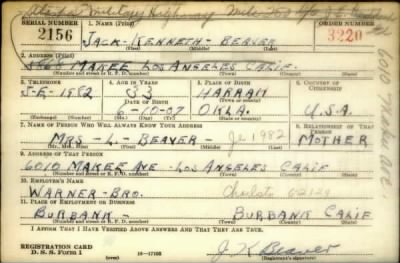 Alaska Military Highway
SERIAL NUMBER 1. NAME (Print) ORDER NUMBER
2156 JACK - KENNETH - BEAVER 3220
(First) (Middle) (Last)
2. ADDRESS (Print)
MAKEE LOS ANGELES CALIF.
(Number and street or R. F. D. number) (Town) (County) (State)
3. TELEPHONE 4. AGE IN YEARS 5. PLACE OF BIRTH 6. COUNTRY OF CITIZENSHIP
J-E-1982 33 HARRAH
DATE OF BIRTH (Town or county)
6-10-07 OKLA. U.S.A.
(Exchange) (Number) (Mo.) (Day) (Yr.) (State or country)
7. NAME OF PERSON WHO WILL ALWAYS KNOW YOUR ADDRESS 8. RELATIONSHIP OF THAT PERSON
MRS - L - BEAVER Je 1982 MOTHER
(Mr., Mrs., Miss) (First) (Middle) (Last)
9. ADDRESS OF THAT PERSON
6010 MAKEE AVE - LOS ANGELES CALIF
(Number and street or R. F. D. number) (Town) (County) (State)
10. EMPLOYER'S NAME
WARNER - BRO.
11. PLACE OF EMPLOYMENT OR BUSINESS
BURBANK - BURBANK CALIF
(Number and street or R. F. D. number) (Town) (County) (State)
I AFFIRM THAT I HAVE VERIFIED ABOVE ANSWERS AND THAT THEY ARE TRUE.
REGISTRATION CARD
D. S. S. Form 1 16-17105 J. K. Beaver
(Registrant's signature)